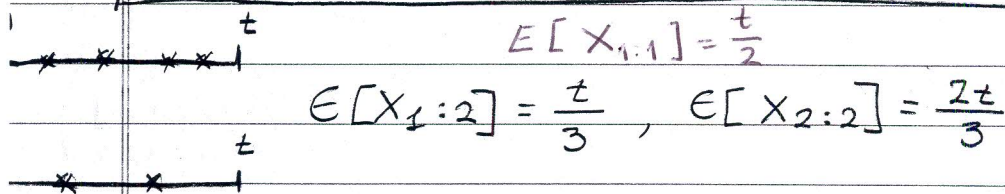 t
E[X_{1:1}] = \frac{t}{2}
E[X_{1:2}] = \frac{t}{3} , E[X_{2:2}] = \frac{2t}{3}
t